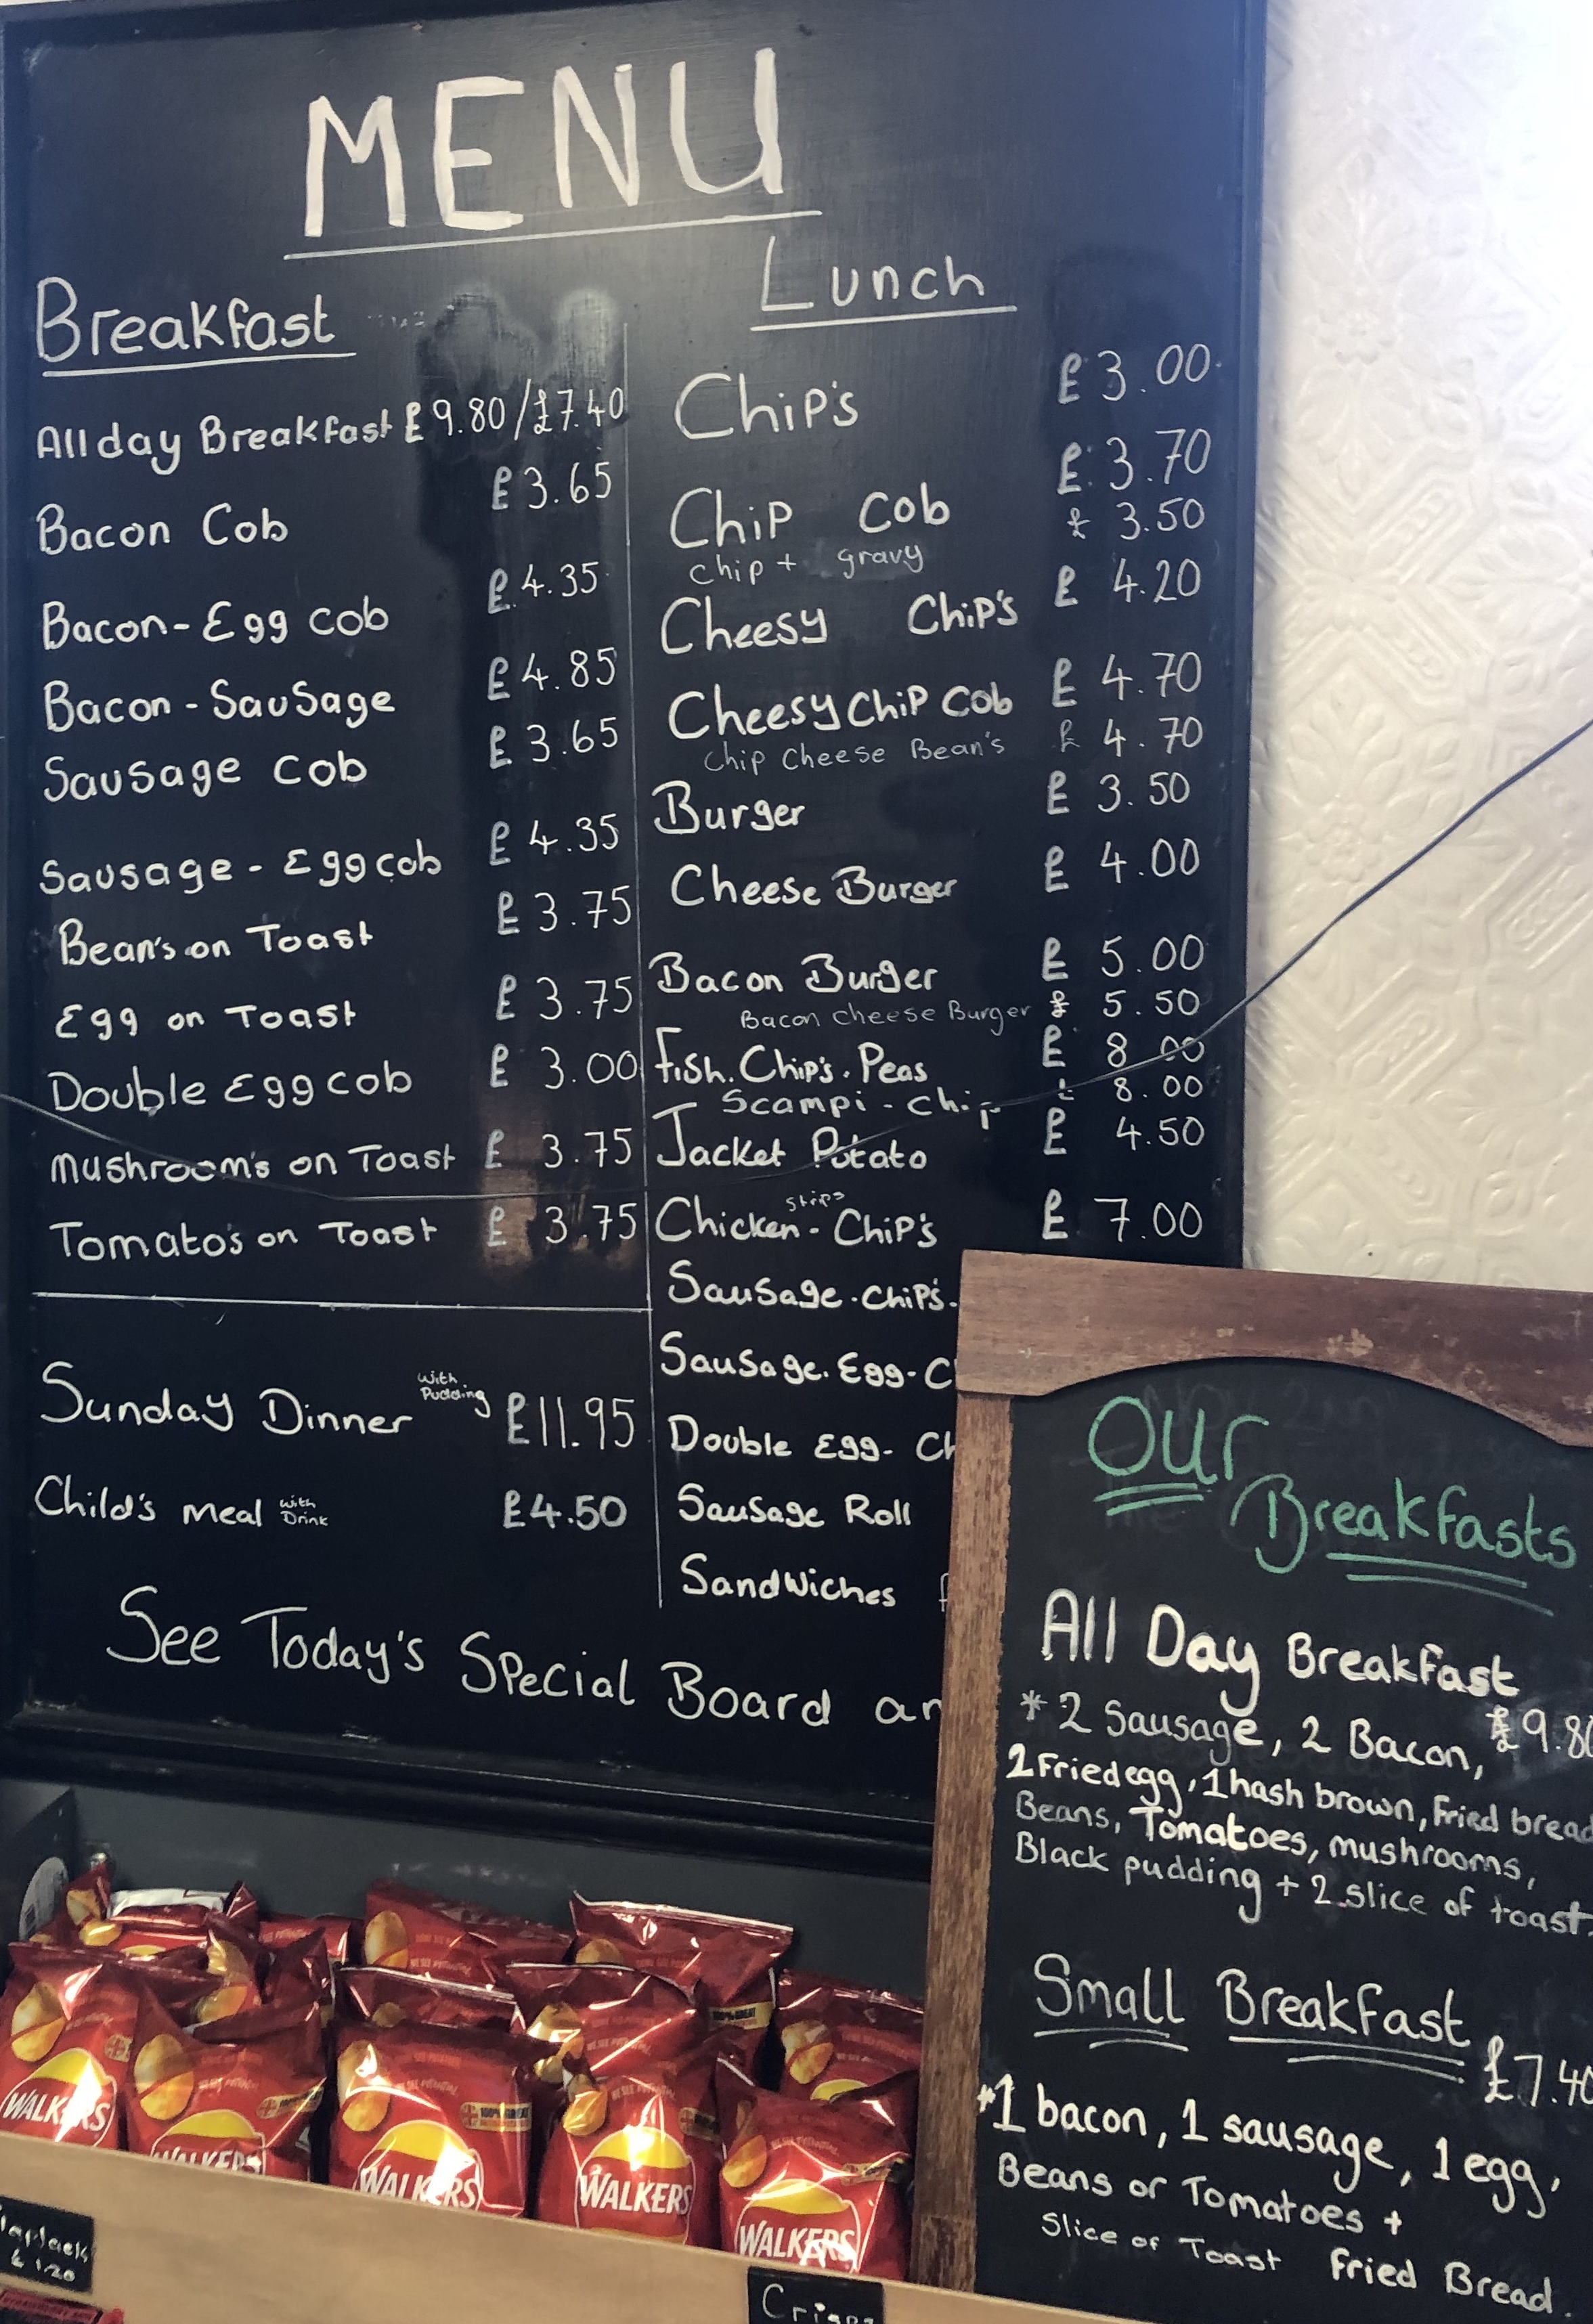 MENU
Breakfast
All day Breakfast £9.80/£7.40
Bacon Cob £3.65
Bacon-Egg cob £4.35
Bacon-Sausage £4.85
Sausage cob £3.65
Sausage-Egg cob £4.35
Bean's on Toast £3.75
Egg on Toast £3.75
Double Egg cob £3.00
Mushroom's on Toast £3.75
Tomato's on Toast £3.75
Sunday Dinner with Pudding £11.95
Child's meal with Drink £4.50
Lunch
Chip's £3.00
Chip Cob £3.70
chip + gravy £3.50
Cheesy Chip's £4.20
Cheesy Chip Cob £4.70
Chip Cheese Bean's £4.70
Burger £3.50
Cheese Burger £4.00
Bacon Burger £5.00
Bacon cheese Burger £5.50
Fish.Chip's.Peas £8.00
Scampi - chip £8.00
Jacket Potato £4.50
Chicken strips - Chip's £7.00
Sausage.Chip's.
Sausage.Egg-C
Double Egg- Ch
Sausage Roll
Sandwiches
See Today's Special Board an
Our
Breakfasts
All Day Breakfast
*2 Sausage, 2 Bacon, £9.80
2 Fried egg, 1 hash brown, Fried bread
Beans, Tomatoes, mushrooms,
Black pudding + 2 slice of toast.
Small Breakfast
£7.40
*1 bacon, 1 sausage, 1 egg,
Beans or Tomatoes +
Slice of Toast Fried Bread
WALKERS
WALKERS
WALKERS
WALKERS
WALKERS
£1.20
Crisps